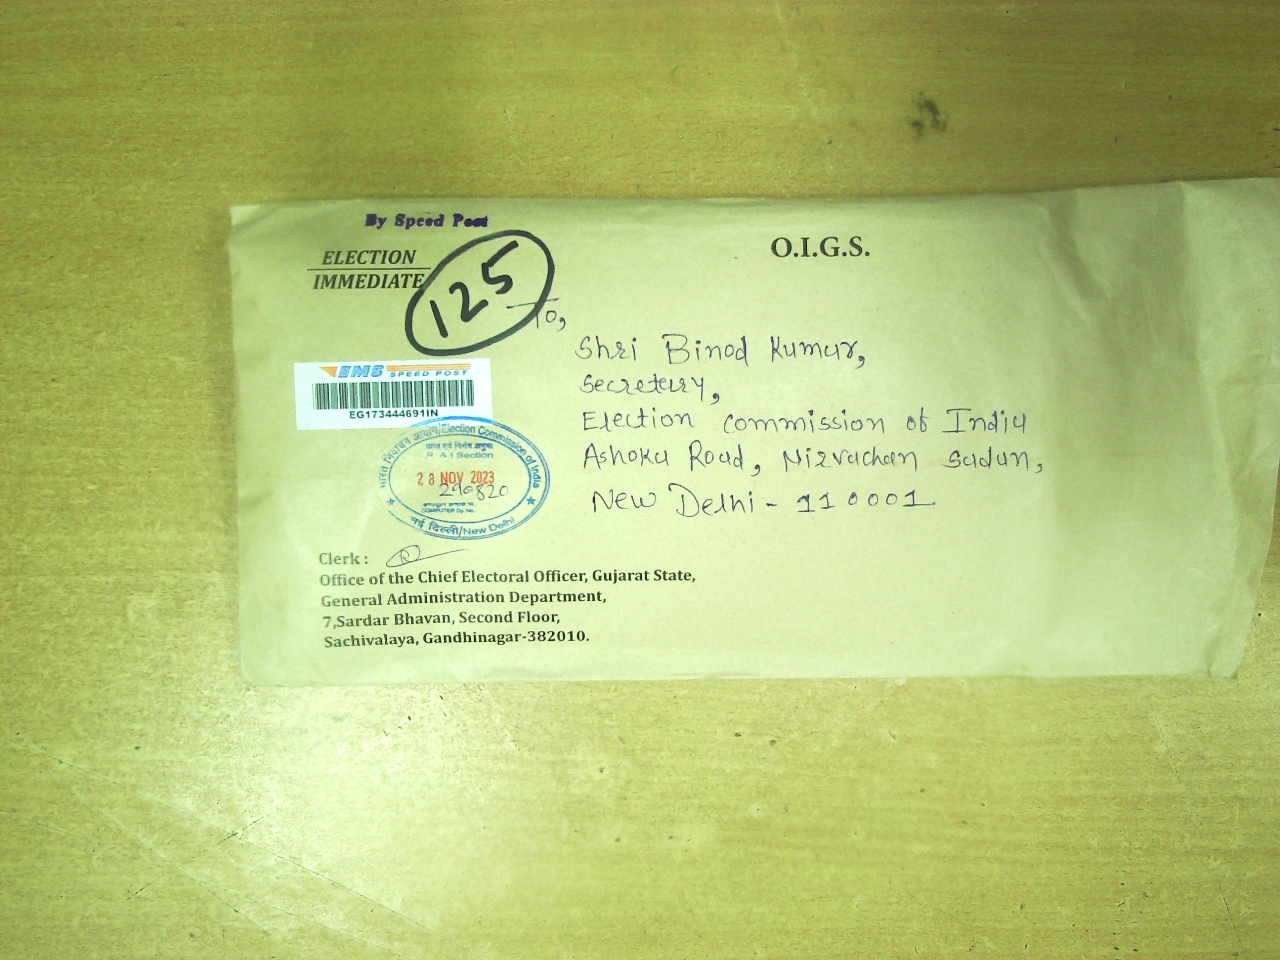 By Speed Post
O.I.G.S.
ELECTION
IMMEDIATE
125
To,
Shri Binod Kumar,
Secretery,
Election commission of India
Ashoka Road, Nirvachan sadan,
New Delhi - 110001
EMS
SPEED POST
EG173444691IN
भारत निर्वाचन आयोग/Election Commission of India
R A I Section
28 NOV 2023
290820
नई दिल्ली/New Delhi
Clerk :
Office of the Chief Electoral Officer, Gujarat State,
General Administration Department,
7,Sardar Bhavan, Second Floor,
Sachivalaya, Gandhinagar-382010.